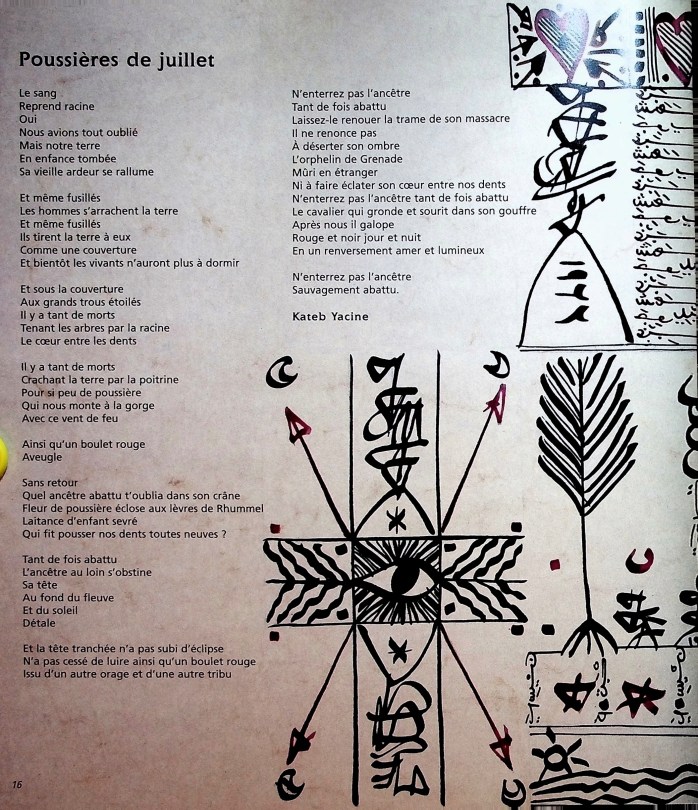 Poussières de juillet
Le sang
Reprend racine
Oui
Nous avions tout oublié
Mais notre terre
En enfance tombée
Sa vieille ardeur se rallume
Et même fusillés
Les hommes s'arrachent la terre
Et même fusillés
Ils tirent la terre à eux
Comme une couverture
Et bientôt les vivants n'auront plus à dormir
Et sous la couverture
Aux grands trous étoilés
Il y a tant de morts
Tenant les arbres par la racine
Le cœur entre les dents
Il y a tant de morts
Crachant la terre par la poitrine
Pour si peu de poussière
Qui nous monte à la gorge
Avec ce vent de feu
Ainsi qu'un boulet rouge
Aveugle
Sans retour
Quel ancêtre abattu t'oublia dans son crâne
Fleur de poussière éclose aux lèvres de Rhummel
Laitance d'enfant sevré
Qui fit pousser nos dents toutes neuves ?
Tant de fois abattu
L'ancêtre au loin s'obstine
Sa tête
Au fond du fleuve
Et du soleil
Détale
Et la tête tranchée n'a pas subi d'éclipse
N'a pas cessé de luire ainsi qu'un boulet rouge
Issu d'un autre orage et d'une autre tribu
N'enterrez pas l'ancêtre
Tant de fois abattu
Laissez-le renouer la trame de son massacre
Il ne renonce pas
À déserter son ombre
L'orphelin de Grenade
Mûri en étranger
Ni à faire éclater son cœur entre nos dents
N'enterrez pas l'ancêtre tant de fois abattu
Le cavalier qui gronde et sourit dans son gouffre
Après nous il galope
Rouge et noir jour et nuit
En un renversement amer et lumineux
N'enterrez pas l'ancêtre
Sauvagement abattu.
Kateb Yacine
16